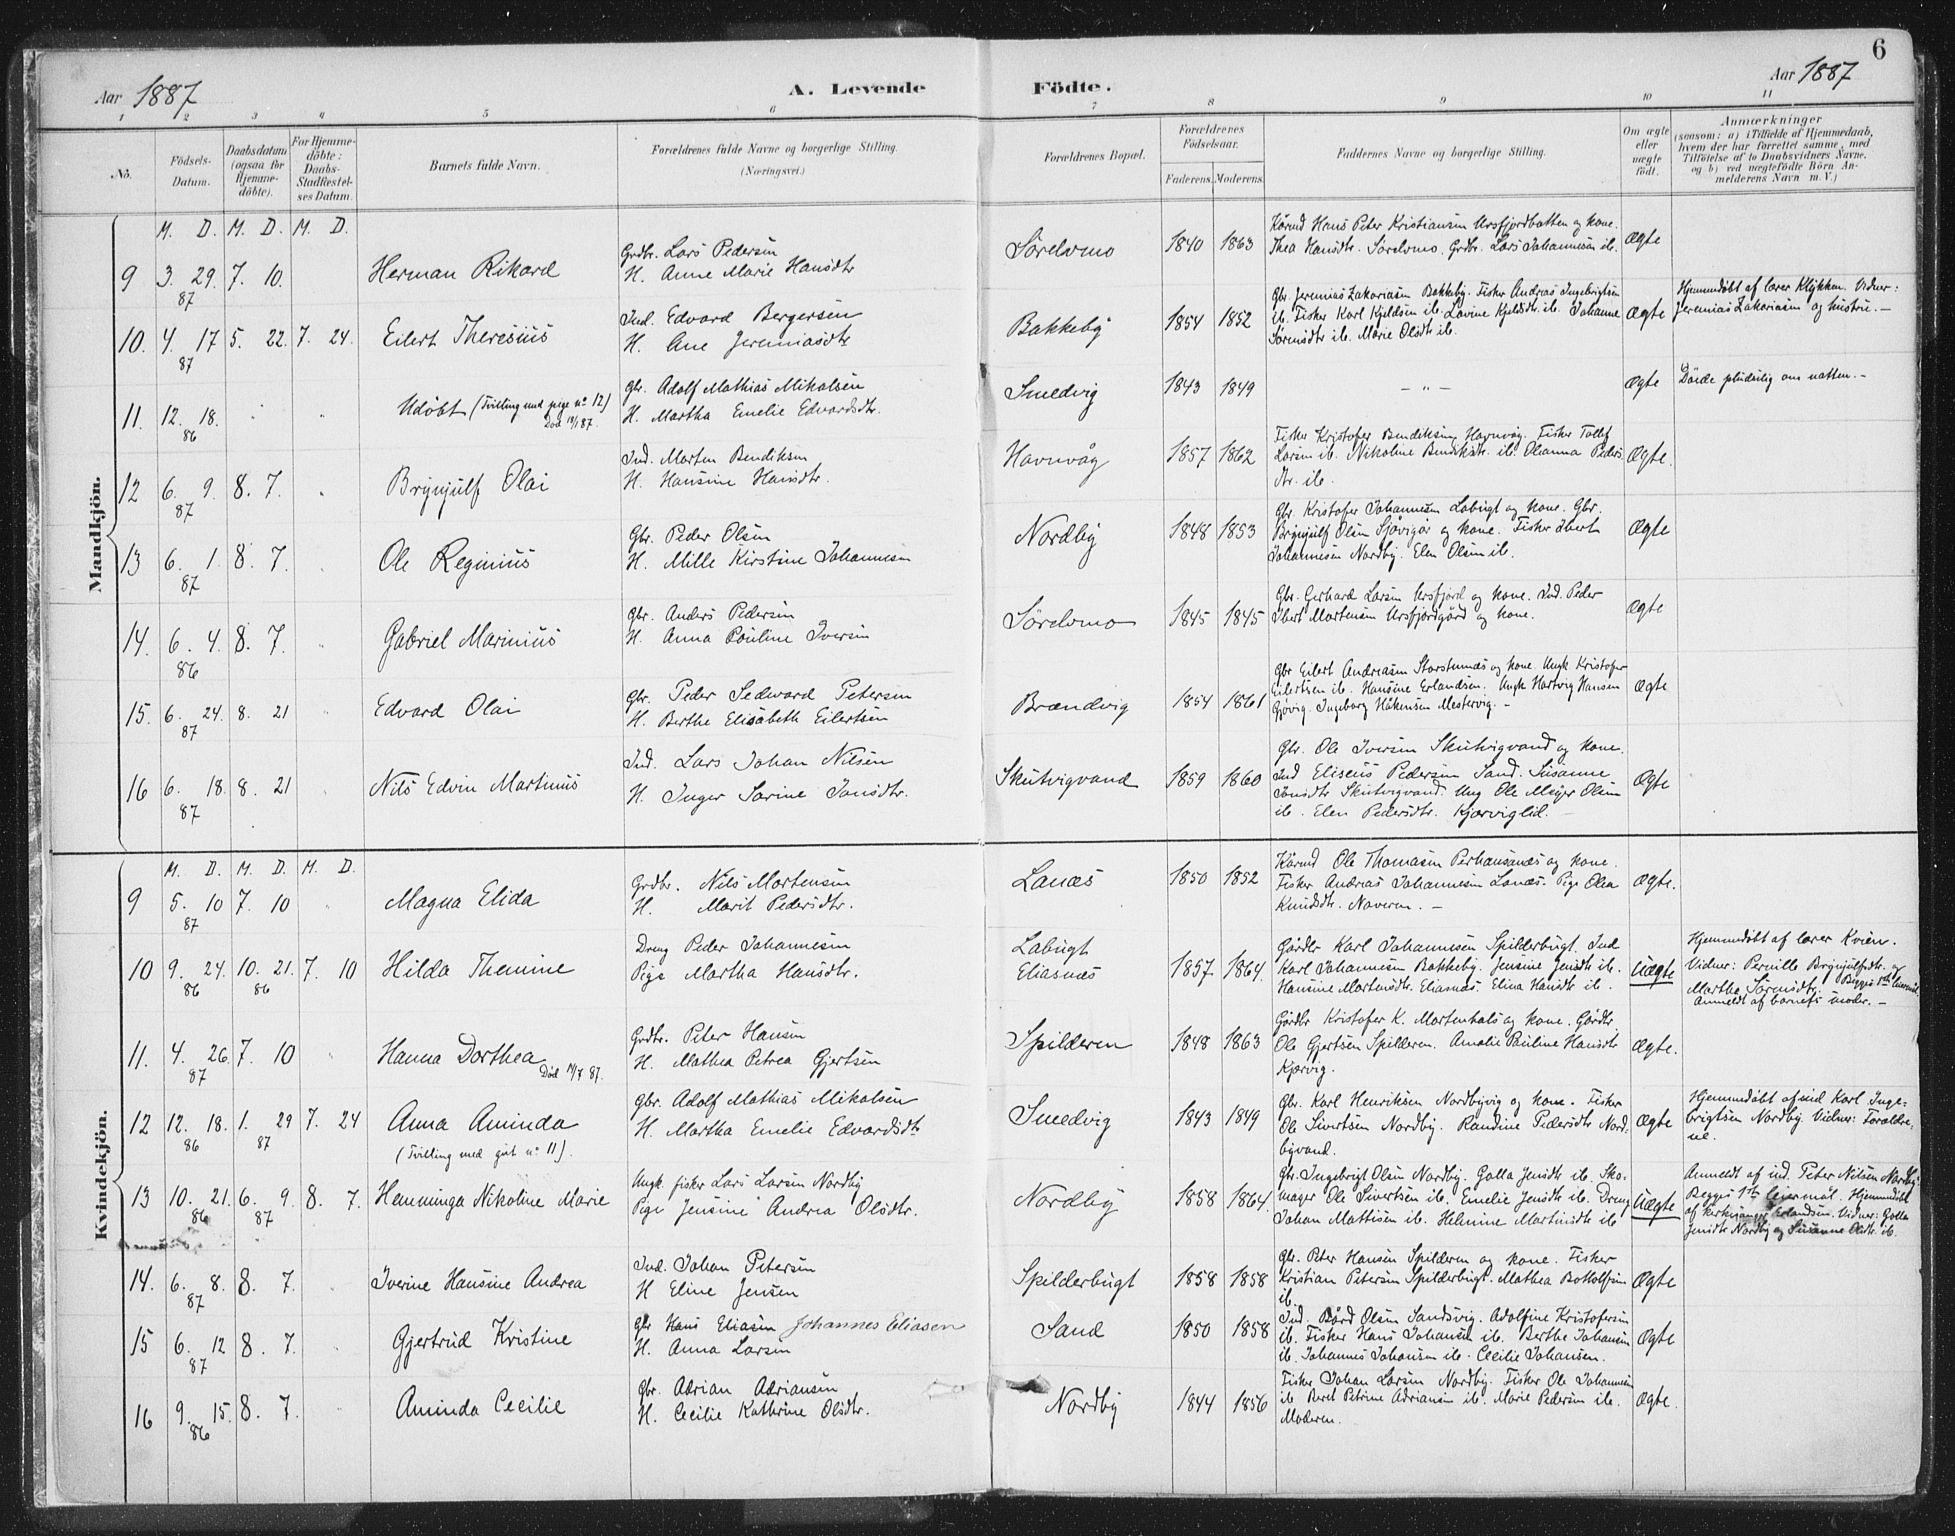 6
Aar 1887
A. Levende
Födte.
Aar 1887
1 2 3 4 5 6 7 8 9 10 11
No.
Födsels-
Datum.
Daabsdatum
(ogsaa for
Hjemme-
döbte).
For Hjemme-
döbte:
Daabs-
Stadfæstel-
ses Datum.
Barnets fulde Navn.
Forældrenes fulde Navne og borgerlige Stilling.
(Næringsvei.)
Forældrenes Bopæl.
Forældrenes
Födselsaar.
Faderens. Moderens.
Faddernes Navne og borgerlige Stilling.
Om ægte
eller
uægte
födt.
Anmærkninger
(saasom: a) i Tilfælde af Hjemmedaab,
hvem der har forrettet samme, med
Tilföielse af to Daabsvidners Navne,
og b) ved uægtefödte Börn An-
melderens Navn m. V.)
Mandkjön.
M. D. M. D. M. D.
9 3. 29. 7. 10.
87
Herman Rikard
Grdbr. Lars Pedersen
H. Anne Marie Hansdtr
Sørelvmo
1840 1863
Kårmd Hans Peter Kristiansen Ursfjordbotten og kone.
Thea Hansdtr. Sørelvmo. Grdbr. Lars Johannesen ib.
Ægte
10. 4. 17 5. 22. 7. 24.
87
Eilert Theresius
Ind. Edvard Bergersen
H. Ane Jeremiasdtr
Bakkeby
1854 1852
Gbr. Jeremias Zakariasen Bakkeby. Fisker Andreas Ingebrigtsen
ib. Fisker Karl Kjeldsen ib. Lovine Kjeldsdtr. ib. Johanne
Sørensdtr ib. Marie Olsdtr ib.
Ægte
Hjemmedøbt af lærer Klykken. Vidner:
Jeremias Zakariasen og hustru. —
11. 12. 18.
86
Udøbt (Tvilling med pige no 12)
Død 18/1 87.
gbr. Adolf Mathias Mikalsen
H. Martha Emelie Edvardsdtr.
Smedvig
1843 1849
— " —
Ægte
Døde pludselig om natten. —
12 6. 9. 8. 7.
87
Brynjulf Olai
Ind. Morten Bendiksen
H. Hansine Hansdtr.
Havnvåg
1857 1862
Fisker Kristofer Bendiksen Havnvåg. Fisker Tollef
Larsen ib. Nikoline Bendiksdtr. ib. Oleanna Peders
dtr. ib.
Ægte.
13 6. 1. 8. 7.
87
Ole Reginius
Gbr. Peder Olsen
H. Mille Kirstine Johannesen
Nordby
1848 1853
Gbr. Kristofer Johannesen Labugt og kone. Gbr.
Brynjulf Olsen Sjøvigår og kone. Fisker Ibert
Johannesen Nordby. Elen Olsen ib.
Ægte
14. 6. 4. 8. 7.
86
Gabriel Marinius
Gbr. Anders Pedersen
H. Anna Pouline Iversen
Sørelvmo
1845 1845
Gbr. Gerhard Larsen Ursfjord og kone. Ind. Peder
Ibert Mortensen Ursfjordgård og kone.
Ægte
15. 6. 24. 8. 21
87
Edvard Olai
Gbr. Peder Sedevard Petersen
H. Berthe Elisabeth Eilertsen
Brændvig
1854 1861
Gbr Eilert Andreasen Storstennæs og kone. Ungk Kristofer
Eilertsen ib. Hansine Erlandsen. Ungk Hartvig Hansen
Gjøvig. Ingeborg Håkensen Mestervig. —
Ægte
16 6. 18. 8. 21
87
Nils Edvin Martinus
Ind. Lars Johan Nilsen
H. Inger Sarine Jonsdtr.
Skutvigvand
1859 1860
Gbr. Ole Iversen Skutvigvand og kone.
Ind Eliseus Pedersen Sand. Susanne
Jonsdtr Skutvigvand. Ung Ole Meyer Olsen
ib. Elen Pedersdtr. Kjærviglid. —
Ægte
Kvindekjön.
M. D. M. D. M. D.
9 5. 10 7. 10
87
Magna Elida
Grdbr. Nils Mortensen
H. Marit Pedersdtr.
Lanæs
1850 1852
Kårmd Ole Thomasen Perhansanæs og kone.
Fisker Andreas Johannesen Lanæs. Pige Olea
Knudsdtr. Naveren. —
Ægte.
10 9. 24. 10. 21. 7. 10
86 86
Hilda Themine
Dreng Peder Johannesen
Pige Martha Hansdtr.
Labugt
Eliasnæs
1857. 1864.
Gårdbr Karl Johannesen Spilderbugt. Ind
Karl Johannesen Bakkeby. Jensine Jensdtr ib.
Hansine Mortensdtr. Eliasnæs. Elina Hansdtr ib.
Uægte
Hjemmedøbt af lærer Kvien.
Vidner: Pernille Brynjulfsdtr. og
Martha Sørensdtr. Begges 1ste leiermål.
Anmeldt af barnets moder. —
11. 4. 26. 7. 10
87
Hanna Dorthea
Død 11/7 87.
Grdbr. Peter Hansen
H. Mathea Petrea Gjertsen
Spilderen
1848 1863
Gårdbr Kristofer K. Mortenhals og kone. Gårdbr
Ole Gjertsen Spilderen. Amalie Pauline Hansdtr
Kjærvig.
Ægte.
12 12. 18. 1. 29 7. 24
86 87
Anna Aminda
(Tvilling med gut no 11).
Gbr. Adolf Mathias Mikalsen
H. Martha Emelie Edvardsdtr
Smedvig
1843 1849
Gbr. Karl Henriksen Nordbyvig og kone. Fisker
Ole Sivertsen Nordby. Randine Pedersdtr Nord-
byvand.
Ægte
Hjemmedøbt af ind Karl Inge-
brigtsen Nordby. Vidner: Forældre-
ne.
13 10. 21. 6. 9 8. 7.
86 87
Henninga Nikoline Marie
Ungk. fisker Lars Larsen Nordby
Pige Jensine Andrea Olsdtr.
Nordby
1858 1864.
Gbr. Ingebrigt Olsen Nordby. Golla Jensdtr ib. Sko-
mager Ole Sivertsen ib. Emelie Jensdtr ib. Dreng
Johan Mattisen ib. Helmine Martinsdtr ib
Uægte
Anmeldt af ind. Peter Nilsen Nordby
Begges 1ste leiermål. Hjemmedøbt
af kirkesanger Erlandsen. Vidner: Golla
Jensdtr Nordby og Susanne Olsdtr. ib.
14. 6. 8. 8. 7.
87
Iverine Hansine Andrea
Ind. Johan Petersen
H Eline Jensen
Spilderbugt
1858 1858
Gbr. Peter Hansen Spilderen og kone. Fisker
Kristian Petersen Spilderbugt. Mathea Bottolfsen
ib.
Ægte
15 6. 12 8. 7.
87
Gjertrud Kristine
Gbr Hans Eliasen Johannes Eliasen
H. Anna Larsen
Sand
1850 1858
Ind Bård Olsen Sandsvig. Adolfine Kristofersen
ib. Fisker Hans Johansen ib. Berthe Johansen
ib. Johannes Johansen ib. Cecilie Johansen.
Ægte
16 9. 15. 8. 7.
86
Aminda Cecilie
Gbr. Adrian Adriansen
H. Cecilie Kathrine Olsdtr.
Nordby
1844 1856
Fisker Johan Larsen Nordby. Fisker Ole Johannesen
ib Beret Petrine Adriansen ib. Marie Pedersen ib.
Moderen.
Ægte.